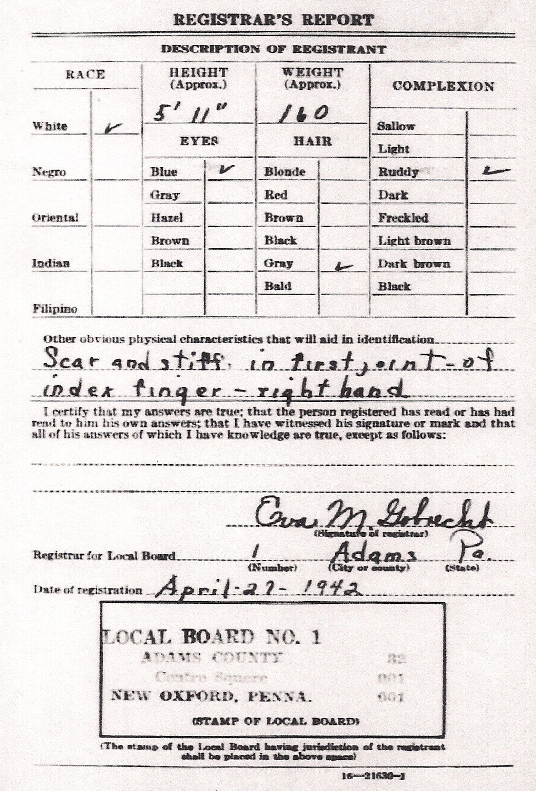 REGISTRAR'S REPORT
DESCRIPTION OF REGISTRANT
RACE HEIGHT (Approx.) WEIGHT (Approx.) COMPLEXION
5' 11" 160
White ✓ EYES HAIR Sallow
Light
Negro Blue ✓ Blonde Ruddy ✓
Gray Red Dark
Oriental Hazel Brown Freckled
Brown Black Light brown
Indian Black Gray ✓ Dark brown
Bald Black
Filipino
Other obvious physical characteristics that will aid in identification
Scar and stiff in first joint - of
index finger - right hand
I certify that my answers are true; that the person registered has read or has had
read to him his own answers; that I have witnessed his signature or mark and that
all of his answers of which I have knowledge are true, except as follows:
Eva M. Gobrecht
(Signature of registrar)
Registrar for Local Board 1 Adams Pa.
(Number) (City or county) (State)
Date of registration April-27-1942
LOCAL BOARD NO. 1
ADAMS COUNTY 32
Centre Square 001
NEW OXFORD, PENNA. 001
(STAMP OF LOCAL BOARD)
(The stamp of the Local Board having jurisdiction of the registrant
shall be placed in the above space)
16—21630-1